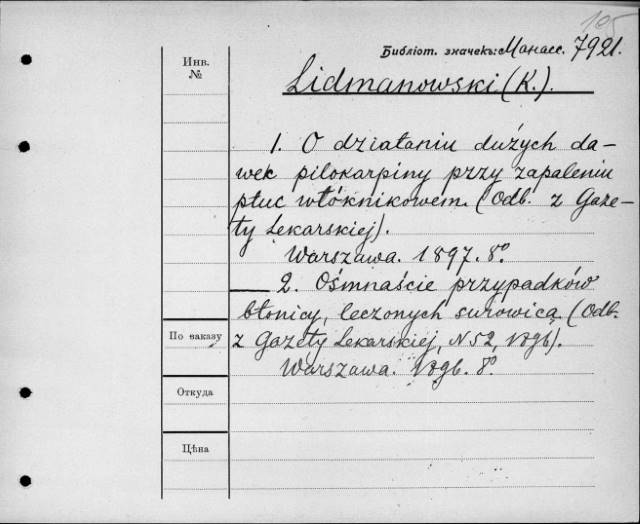 105
Библіот. значекъ: Манасс. 7921.
Инв.
№
Lidmanowski (K.).
1. O działaniu dużych da-
wek pilokarpiny przy zapaleniu
płuc włóknikowem. (Odb. z Gaze-
ty Lekarskiej).
Warszawa. 1897. 8º
2. Ośmnaście przypadków
błonicy, leczonych surowicą. (Odb.
z Gazety Lekarskiej, N 52, 1896).
Warszawa. 1896. 8º
По заказу
Откуда
Цѣна